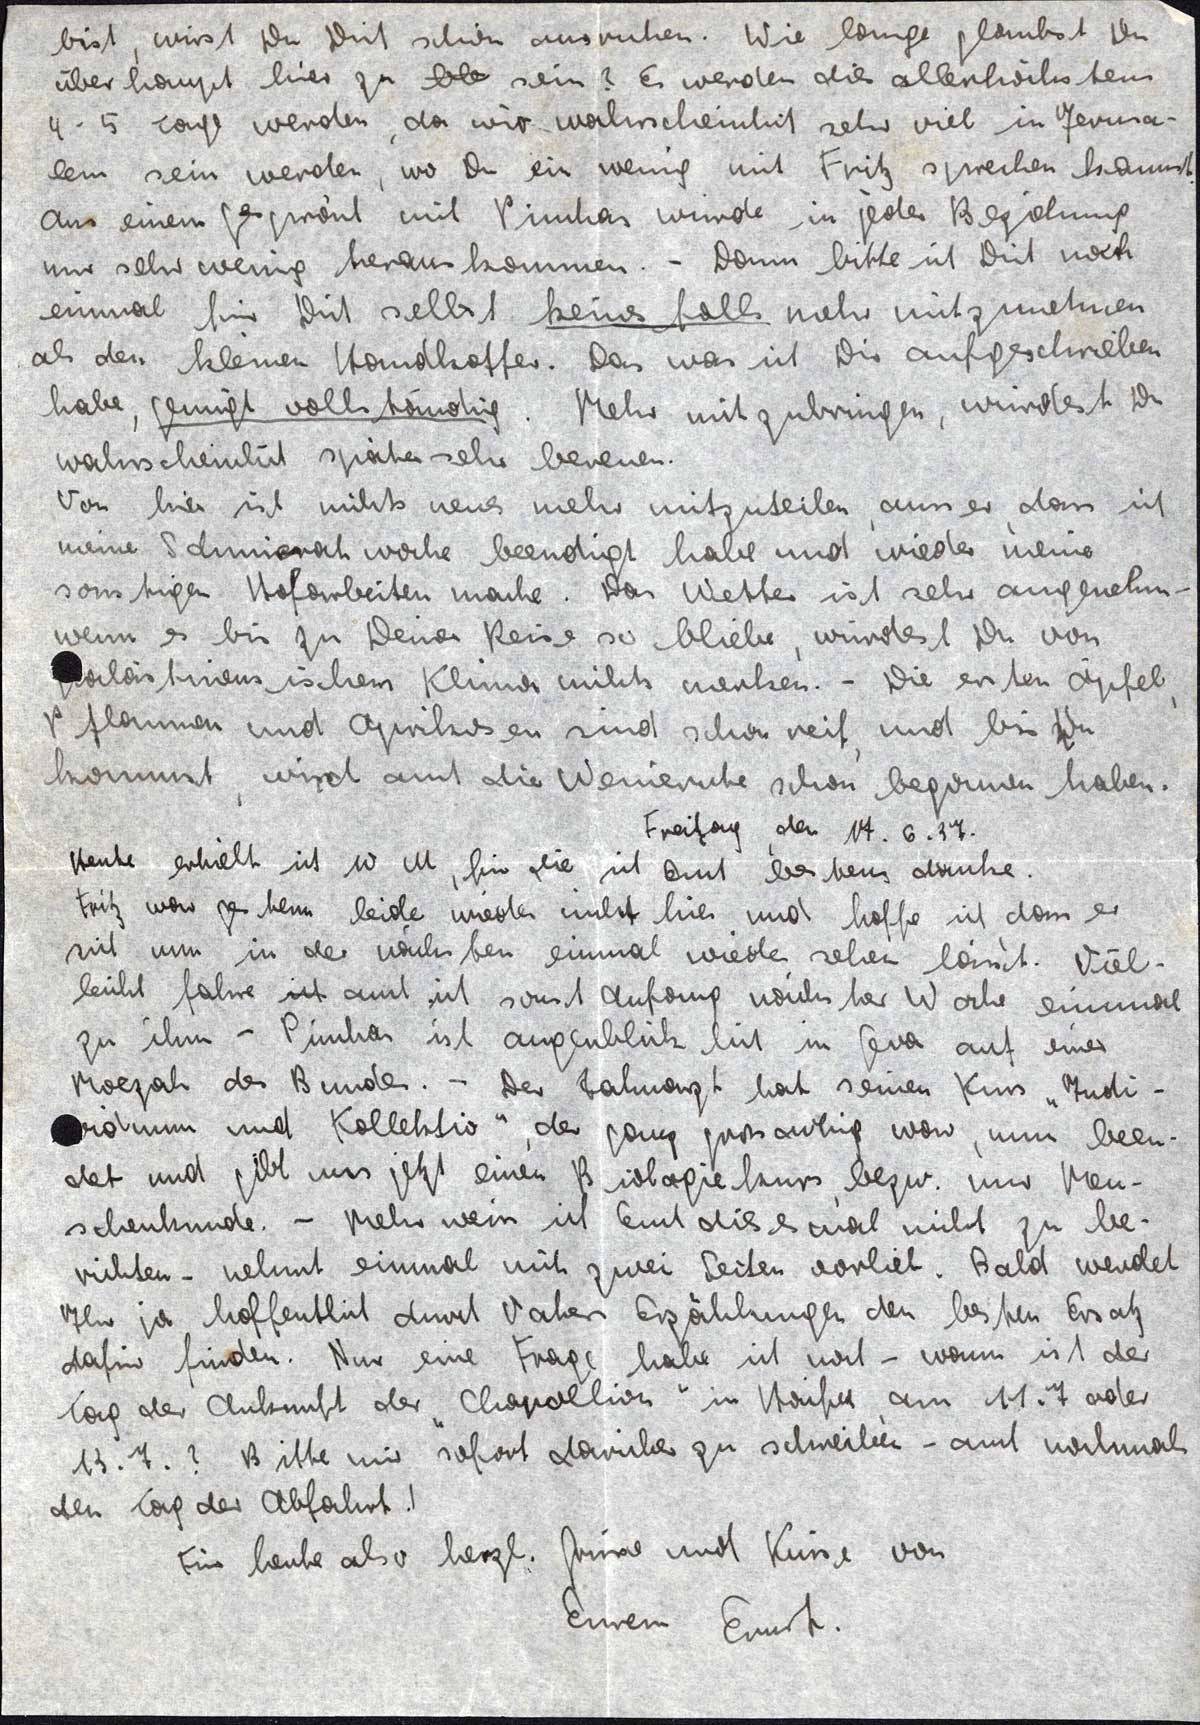 bist, wirst Du Dich schon ausruhen. Wie lange glaubst Du
überhaupt hier zu sein? Es werden die allerhöchstens
4-5 Tage werden, da wir wahrscheinlich sehr viel in Jerusa-
lem sein werden, wo Du ein wenig mit Fritz sprechen kannst.
Aus einem Gespräch mit Pinchas würde in jeder Beziehung
nur sehr wenig herauskommen. - Dann bitte ich Dich noch
einmal für Dich selbst keinesfalls mehr mitzunehmen
als den kleinen Handkoffer. Das was ich Dir aufgeschrieben
habe, genügt vollständig. Mehr mitzubringen, würdest Du
wahrscheinlich später sehr bereuen.
Von hier ist nichts neues mehr mitzuteilen, ausser, dass ich
meine woche beendigt habe und wieder meine
sonstigen Hofarbeiten mache. Das Wetter ist sehr angenehm -
wenn es bis zu Deiner Reise so bliebe, würdest Du von
palästinensischem Klima nichts merken. - Die ersten Äpfel,
Pflaumen und Aprikosen sind schon reif, und bis Du
kommst, wird auch die Weinernte schon begonnen haben.
Freitag, den 17.6.37.
Heute erhielt ich W M, für die ich Euch bestens danke.
Fritz war gestern leider wieder nicht hier und hoffe ich dass er
sich nun in der nächsten einmal wieder sehen lässt. Viel-
leicht fahre auch ich sonst Anfang nächster Woche einmal
zu ihm - Pinchas ist augenblicklich in Geva auf einer
Moezah des Bundes. - Der Zahnarzt hat seinen Kurs „Indi-
viduum und Kollektiv", der ganz grossartig war, nun been-
det und gibt uns jetzt einen Biologiekurs bezw. nur Men-
schenkunde. - Mehr weiss ich Euch diesesmal nicht zu be-
richten - nehmt einmal mit zwei Seiten vorlieb. Bald werdet
Ihr ja hoffentlich durch Vaters Erzählungen den besten Ersatz
dafür finden. Nur eine Frage habe ich noch - wann ist der
Tag der Ankunft der „Chapollion" in Haifa, am 11.7 oder
13.7.? Bitte mir sofort darüber zu schreiben - auch nochmals
den Tag der Abfahrt!
Für heute also herzl. Grüsse und Küsse von
Eurem Ernst.